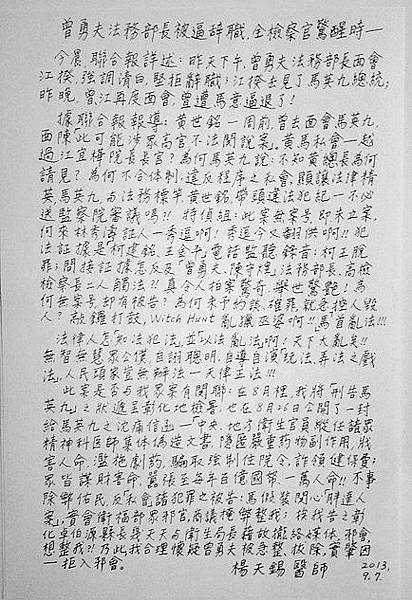 曾勇夫法務部長被逼辞職，全檢察官驚醒時—
今晨，聯合報詳述：昨天下午，曾勇夫法務部長面會
江揆，強調清白，堅拒辭職；江揆去見了馬英九總統；
昨晚，曾、江再度面會，曾遭馬意逼退了！
據聯合報報導：黃世銘一周前，曾去面會馬英九，
面陳"此可能涉眾高官不法關說案"。黃馬私會—越
過江宜樺院長長官？為何馬英九說：不知黃總長為何
請見？為何不合体制、違反程序之私會，顯讓法律精
英馬英九，与法務標竿黃世銘，帶頭違法犯紀—不必
送監察院審議嗎?! 特偵組：此案無案号即未立案，
何來林秀濤証人—秀逗啊！秀逗今又翻供啊!! 犯
法証據是「柯建銘、王金平」電話監聽、錄音：柯王脫
罪；間接証據怎反及"曾勇夫、陳守煌"，法務部長、高檢
檢察長二人觸法?! 真令人拍案驚奇、舉世驚艷！為
何無案号，却有被告？為何未予約談、確罪就急控人毀
人？敲鑼打鼓，Witch Hunt 亂獵巫婆啊!! 馬首亂法!!!
法律人怎知法犯法，並"以法亂法"啊！天下大亂矣!!
無智無慧眾公僕，自詡聰明，自導自演"玩法弄法之戲
法"，人民頭家豈無辦法—天律王法!!!
此案是否与我冢案有関聯：在8月裡，我將「刑告馬
英九」之狀遞至彰化地檢署，也在8月26日公開了一封
給馬英九之沈痛信函—"中央、地方衛生官員縱任諸眾
精神科医師集体偽造文書、隱匿嚴重药物副作用，戕
害人命，濫施劇药，騙取強制住院令，詐領健保費；
眾皆謀財害命，囂張至每年百億國幣、一萬人命!! 不事
除弊佑民，反私會諸犯罪之被告：馬假裝関心「胖達人
案」，實會衛福部眾邪官，商議掩弊整我；挨我告之彰
化卓伯源縣長是天天与衛生局長藉故攏絡媒体。邪會，
想整我?! 乃此我合理懷疑曾勇夫被急整、拔除，實肇因
—拒入邪會。
楊天錫醫師
2013.
9.7.